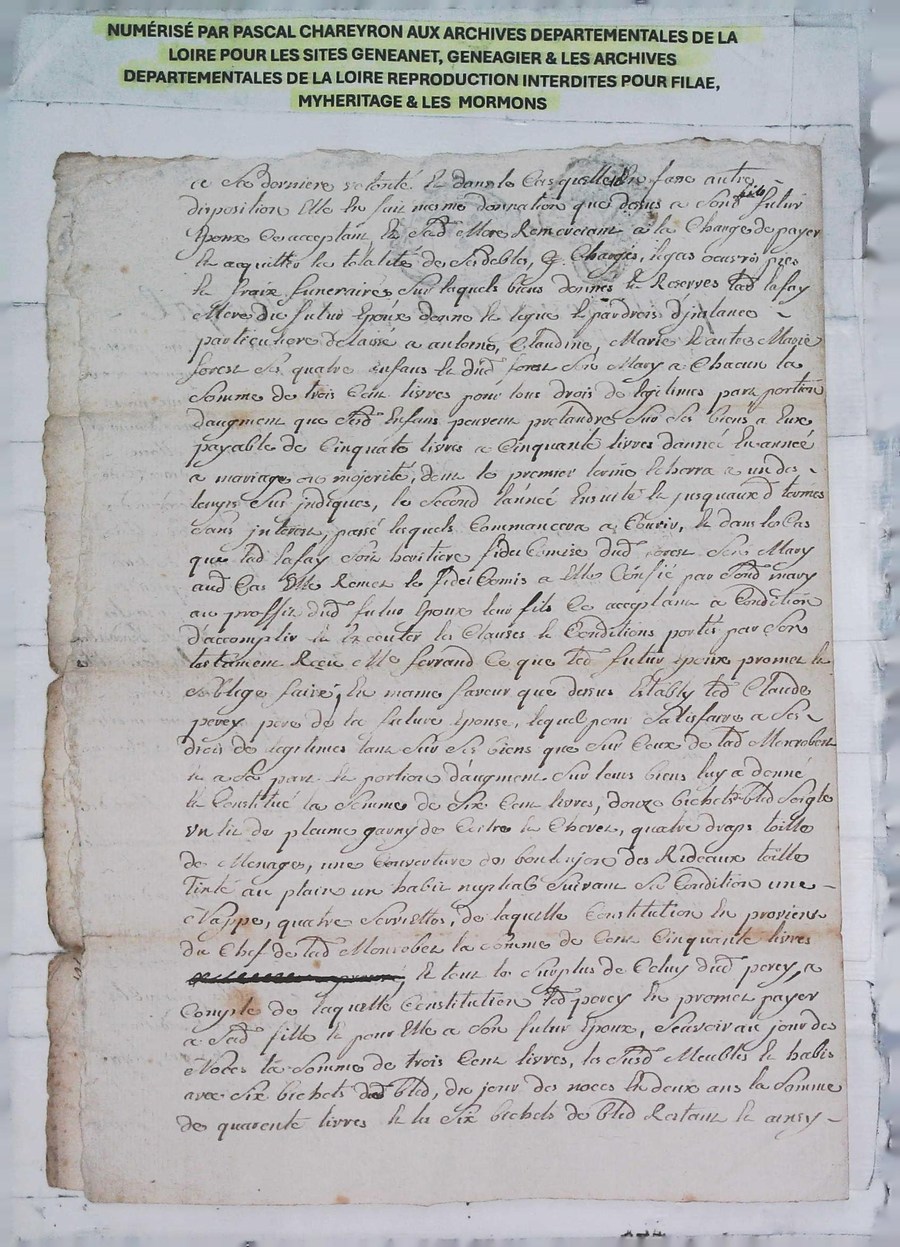 NUMÉRISÉ PAR PASCAL CHAREYRON AUX ARCHIVES DEPARTEMENTALES DE LA
LOIRE POUR LES SITES GENEANET, GENEAGIER & LES ARCHIVES
DEPARTEMENTALES DE LA LOIRE REPRODUCTION INTERDITES POUR FILAE,
MYHERITAGE & LES MORMONS
ce Sa derniere volonté Et dans le Cas quelle En fasse autre
disposition Elle En fait mesme donnation que dessus a Sond futur
Epoux Ce acceptant Et Sad Mere Remerciant a la Charge de payer
Et acquitter la totalité de Ses debtes, & Charges, legas
Et fraix funeraires Sur lesquels biens donnés Et Reservés lad lafay
Mere du futur Epoux donne Et legue Et par droit d'jnstance
particulliere delaissé a antoine, Claudine, Marie Et autre Marie
forest Ses quatre Enfans Et dud forest Son Mary a Chacun la
Somme de trois Cent livres pour tous droits de legitimes part portion
daugment que Sesd Enfans peuvent pretandre Sur Ses biens a Eux
payable de Cinquante livres a Cinquante livres dannée En année
a mariage ou majorité, dont le premier terme Echerra a un des
temps Sus jndiques, le Second lannée Ensuite Et jusquaux d termes
Sans jnterest, passé lesquels Commancera a Courir, Et dans le Cas
que lad lafay Soit heritiere fidei Comise dud forest Son Mary
aud Cas Elle Remet le fidei Comis a Elle Confié par Sond mary
au proffit dud futur Epoux leur fils Ce acceptant a Condition
d'accomplir Et Executer les Clauses Et Conditions portés par Son
testament Receu Me ferrand Ce que led futur Epoux promet Et
soblige faire; En mame faveur que dessus Establi led Claude
perey pere de la future Epouse, lequel pour Satisfaire a Ses
droits de legitimes tant Sur Ses biens que Sur Ceux de lad Monrobert
Et a Sa part Et portion d'augment Sur leurs biens luy a donné
Et Constitué la Somme de Six Cent livres, douze bichets bled Seigle
un lit de plume garny de Coitre Et Chevet, quatre draps toille
de Menages, une Couverture de des Rideaux toille
Tinté au plain un habit nuptial Suivant Sa Condition une
Nappe, quatre Serviettes, de laquelle Constitution En provient
du Chef de lad Monrobert la Somme de Cent Cinquante livres
Et tout le Surplus de Celuy dud perey, a
Compte de laquelle Constitution led perey En promet payer
a Sad fille Et pour Elle a Son futur Epoux, Scavoir au jour des
Noces la Somme de trois Cent livres, les Susd Meubles Et habis
avec Six bichets dud bled, du jour des noces En deux ans la Somme
de quarente livres Et les Six bichets de bled Restant Et ainsy